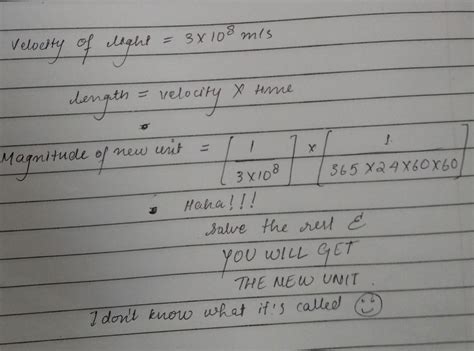 Velocity of light = 3×10⁸ m/s
Length = velocity × time
Magnitude of new unit = [1 / 3×10⁸] × [1 / 365×24×60×60]
Haha!!!
Solve the rest &
YOU WILL GET
THE NEW UNIT.
I don't know what it's called ☺